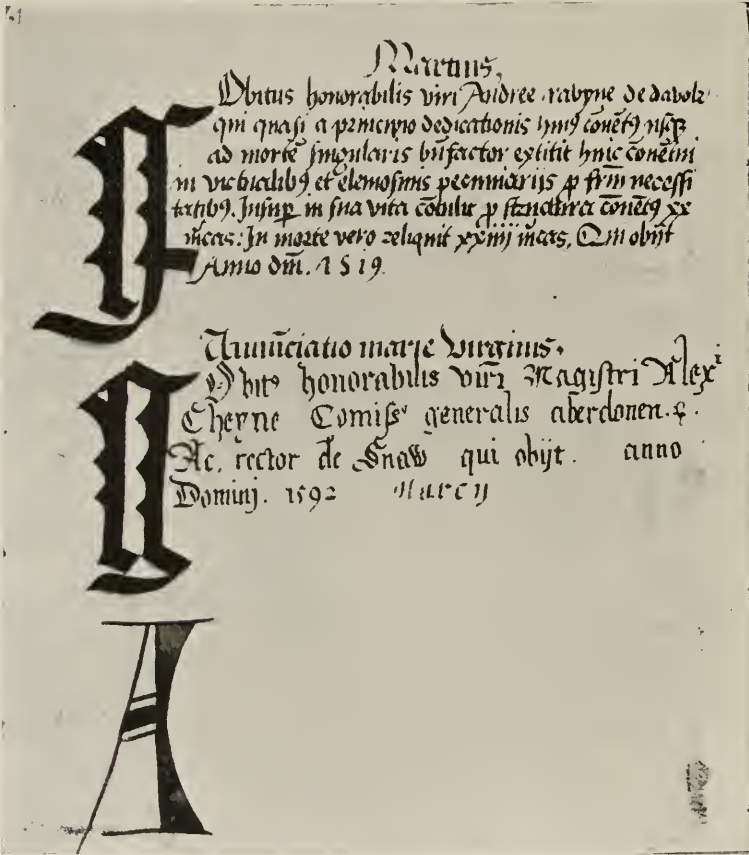 Martius.
Obitus honorabilis viri Andree rabyne de davolz
qui quasi a principio dedicationis huiꝰ cōuētꝰ usqꝫ
ad mortē singularis bn̄factor extitit huic cōuētui
in victualibꝰ et elemosinis pecuniarijs ꝓ frm̄ necessi
tatibꝰ. Insuꝑ in sua vita cōtulit ꝓ structura cōuētꝰ xx
m̄cas: In morte vero reliquit xxiiij m̄cas, Qui obijt
Anno dn̄i. 1519.
F
Annūciatio marie Virginis.
Obitꝰ honorabilis viri Magistri Alexʳⁱ
Cheyne Comissʳ generalis aberdonen.
Ac. rector de Snaw qui obijt . anno
Domini. 1592 Marcij
G
A